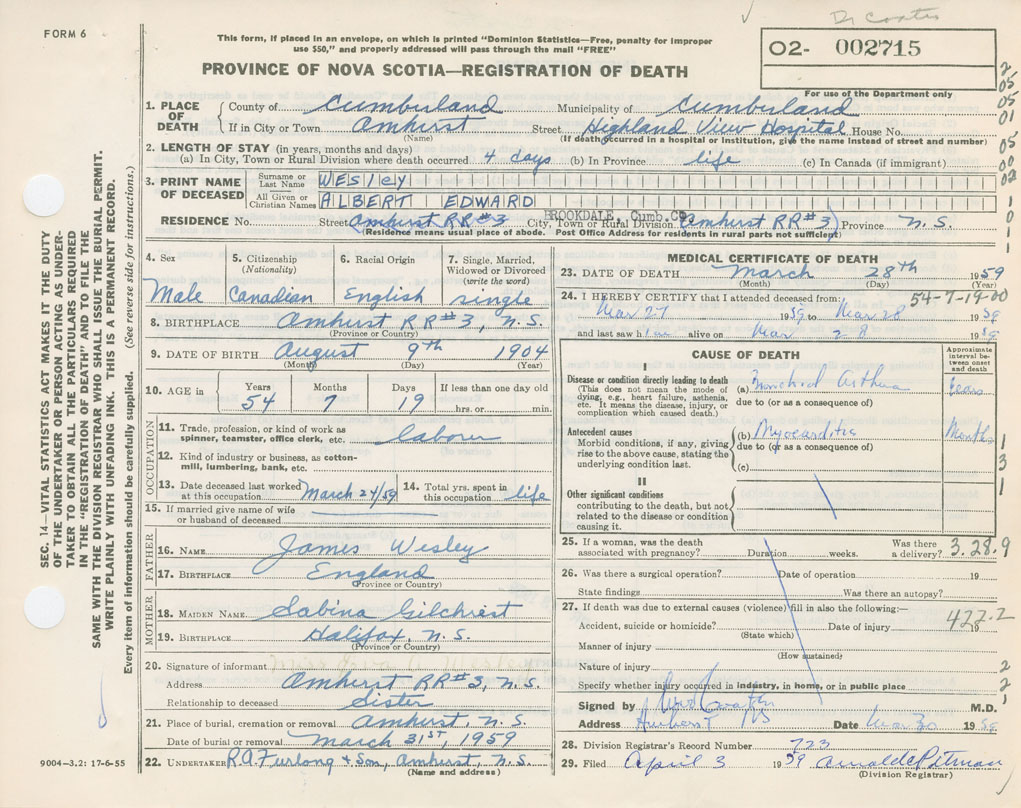 FORM 6
Dr Coates
This form, if placed in an envelope, on which is printed "Dominion Statistics—Free, penalty for improper
use $50," and properly addressed will pass through the mail "FREE"
PROVINCE OF NOVA SCOTIA—REGISTRATION OF DEATH
02- 002715
For use of the Department only
1. PLACE OF DEATH County of Cumberland Municipality of Cumberland
If in City or Town Amherst Street Highland View Hospital House No.
(Name) (If death occurred in a hospital or institution, give the name instead of street and number)
2. LENGTH OF STAY (in years, months and days)
(a) In City, Town or Rural Division where death occurred 4 days (b) In Province life (c) In Canada (if immigrant)
3. PRINT NAME OF DECEASED Surname or Last Name WESLEY
All Given or Christian Names ALBERT EDWARD
BROOKDALE, Cumb.Co.
RESIDENCE No. Street (Amherst RR#3 City, Town or Rural Division Amherst RR#3) Province N.S.
(Residence means usual place of abode. Post Office Address for residents in rural parts not sufficient)
2
05
05
01
05
00
02
1
0
1
1
4. Sex Male
5. Citizenship (Nationality) Canadian
6. Racial Origin English
7. Single, Married, Widowed or Divorced (write the word) single
8. BIRTHPLACE Amherst RR#3, N.S.
(Province or Country)
9. DATE OF BIRTH August 9th 1904
(Month) (Day) (Year)
10. AGE in Years 54 Months 7 Days 19 If less than one day old hrs. or min.
OCCUPATION
11. Trade, profession, or kind of work as spinner, teamster, office clerk, etc. laborer
12. Kind of industry or business, as cotton-mill, lumbering, bank, etc.
13. Date deceased last worked at this occupation March 24/59
14. Total yrs. spent in this occupation life
15. If married give name of wife or husband of deceased
FATHER
16. NAME James Wesley
17. BIRTHPLACE England
(Province or Country)
MOTHER
18. MAIDEN NAME Sabina Gilchrist
19. BIRTHPLACE Halifax, N.S.
(Province or Country)
20. Signature of informant
Address Amherst RR#3, N.S.
Relationship to deceased Sister
21. Place of burial, cremation or removal Amherst, N.S.
Date of burial or removal March 31st, 1959
22. UNDERTAKER R.A. Furlong & Son, Amherst, N.S.
(Name and address)
MEDICAL CERTIFICATE OF DEATH
23. DATE OF DEATH March 28th 1959
(Month) (Day) (Year)
54-7-19-00
24. I HEREBY CERTIFY that I attended deceased from:
Mar 27 1959 to Mar 28 1959
and last saw him alive on Mar 28 1959
CAUSE OF DEATH
Approximate interval between onset and death
I
Disease or condition directly leading to death
(This does not mean the mode of dying, e.g., heart failure, asthenia, etc. It means the disease, injury, or complication which caused death.)
(a) Bronchial Asthma Years
due to (or as a consequence of)
Antecedent causes
Morbid conditions, if any, giving rise to the above cause, stating the underlying condition last.
(b) Myocarditis Months
due to (or as a consequence of)
(c)
1
3
1
II
Other significant conditions
contributing to the death, but not related to the disease or condition causing it.
25. If a woman, was the death associated with pregnancy? Duration weeks. Was there a delivery?
3.28.9
26. Was there a surgical operation? Date of operation 19
State findings Was there an autopsy?
27. If death was due to external causes (violence) fill in also the following:—
422.2
Accident, suicide or homicide? Date of injury 19
(State which)
Manner of injury
(How sustained)
Nature of injury
Specify whether injury occurred in industry, in home, or in public place
2
2
1
Signed by M.D.
Address Amherst NS Date Mar 30 1959
28. Division Registrar's Record Number 723
29. Filed April 3 1959 Arnold C Pitman
(Division Registrar)
9004—3.2: 17-6-55
SEC. 14—VITAL STATISTICS ACT MAKES IT THE DUTY
OF THE UNDERTAKER OR PERSON ACTING AS UNDER-
TAKER TO OBTAIN ALL THE PARTICULARS REQUIRED
IN THE "REGISTRATION OF DEATH" AND TO FILE THE
SAME WITH THE DIVISION REGISTRAR WHO SHALL ISSUE THE BURIAL PERMIT.
WRITE PLAINLY WITH UNFADING INK. THIS IS A PERMANENT RECORD.
Every item of information should be carefully supplied. (See reverse side for instructions.)